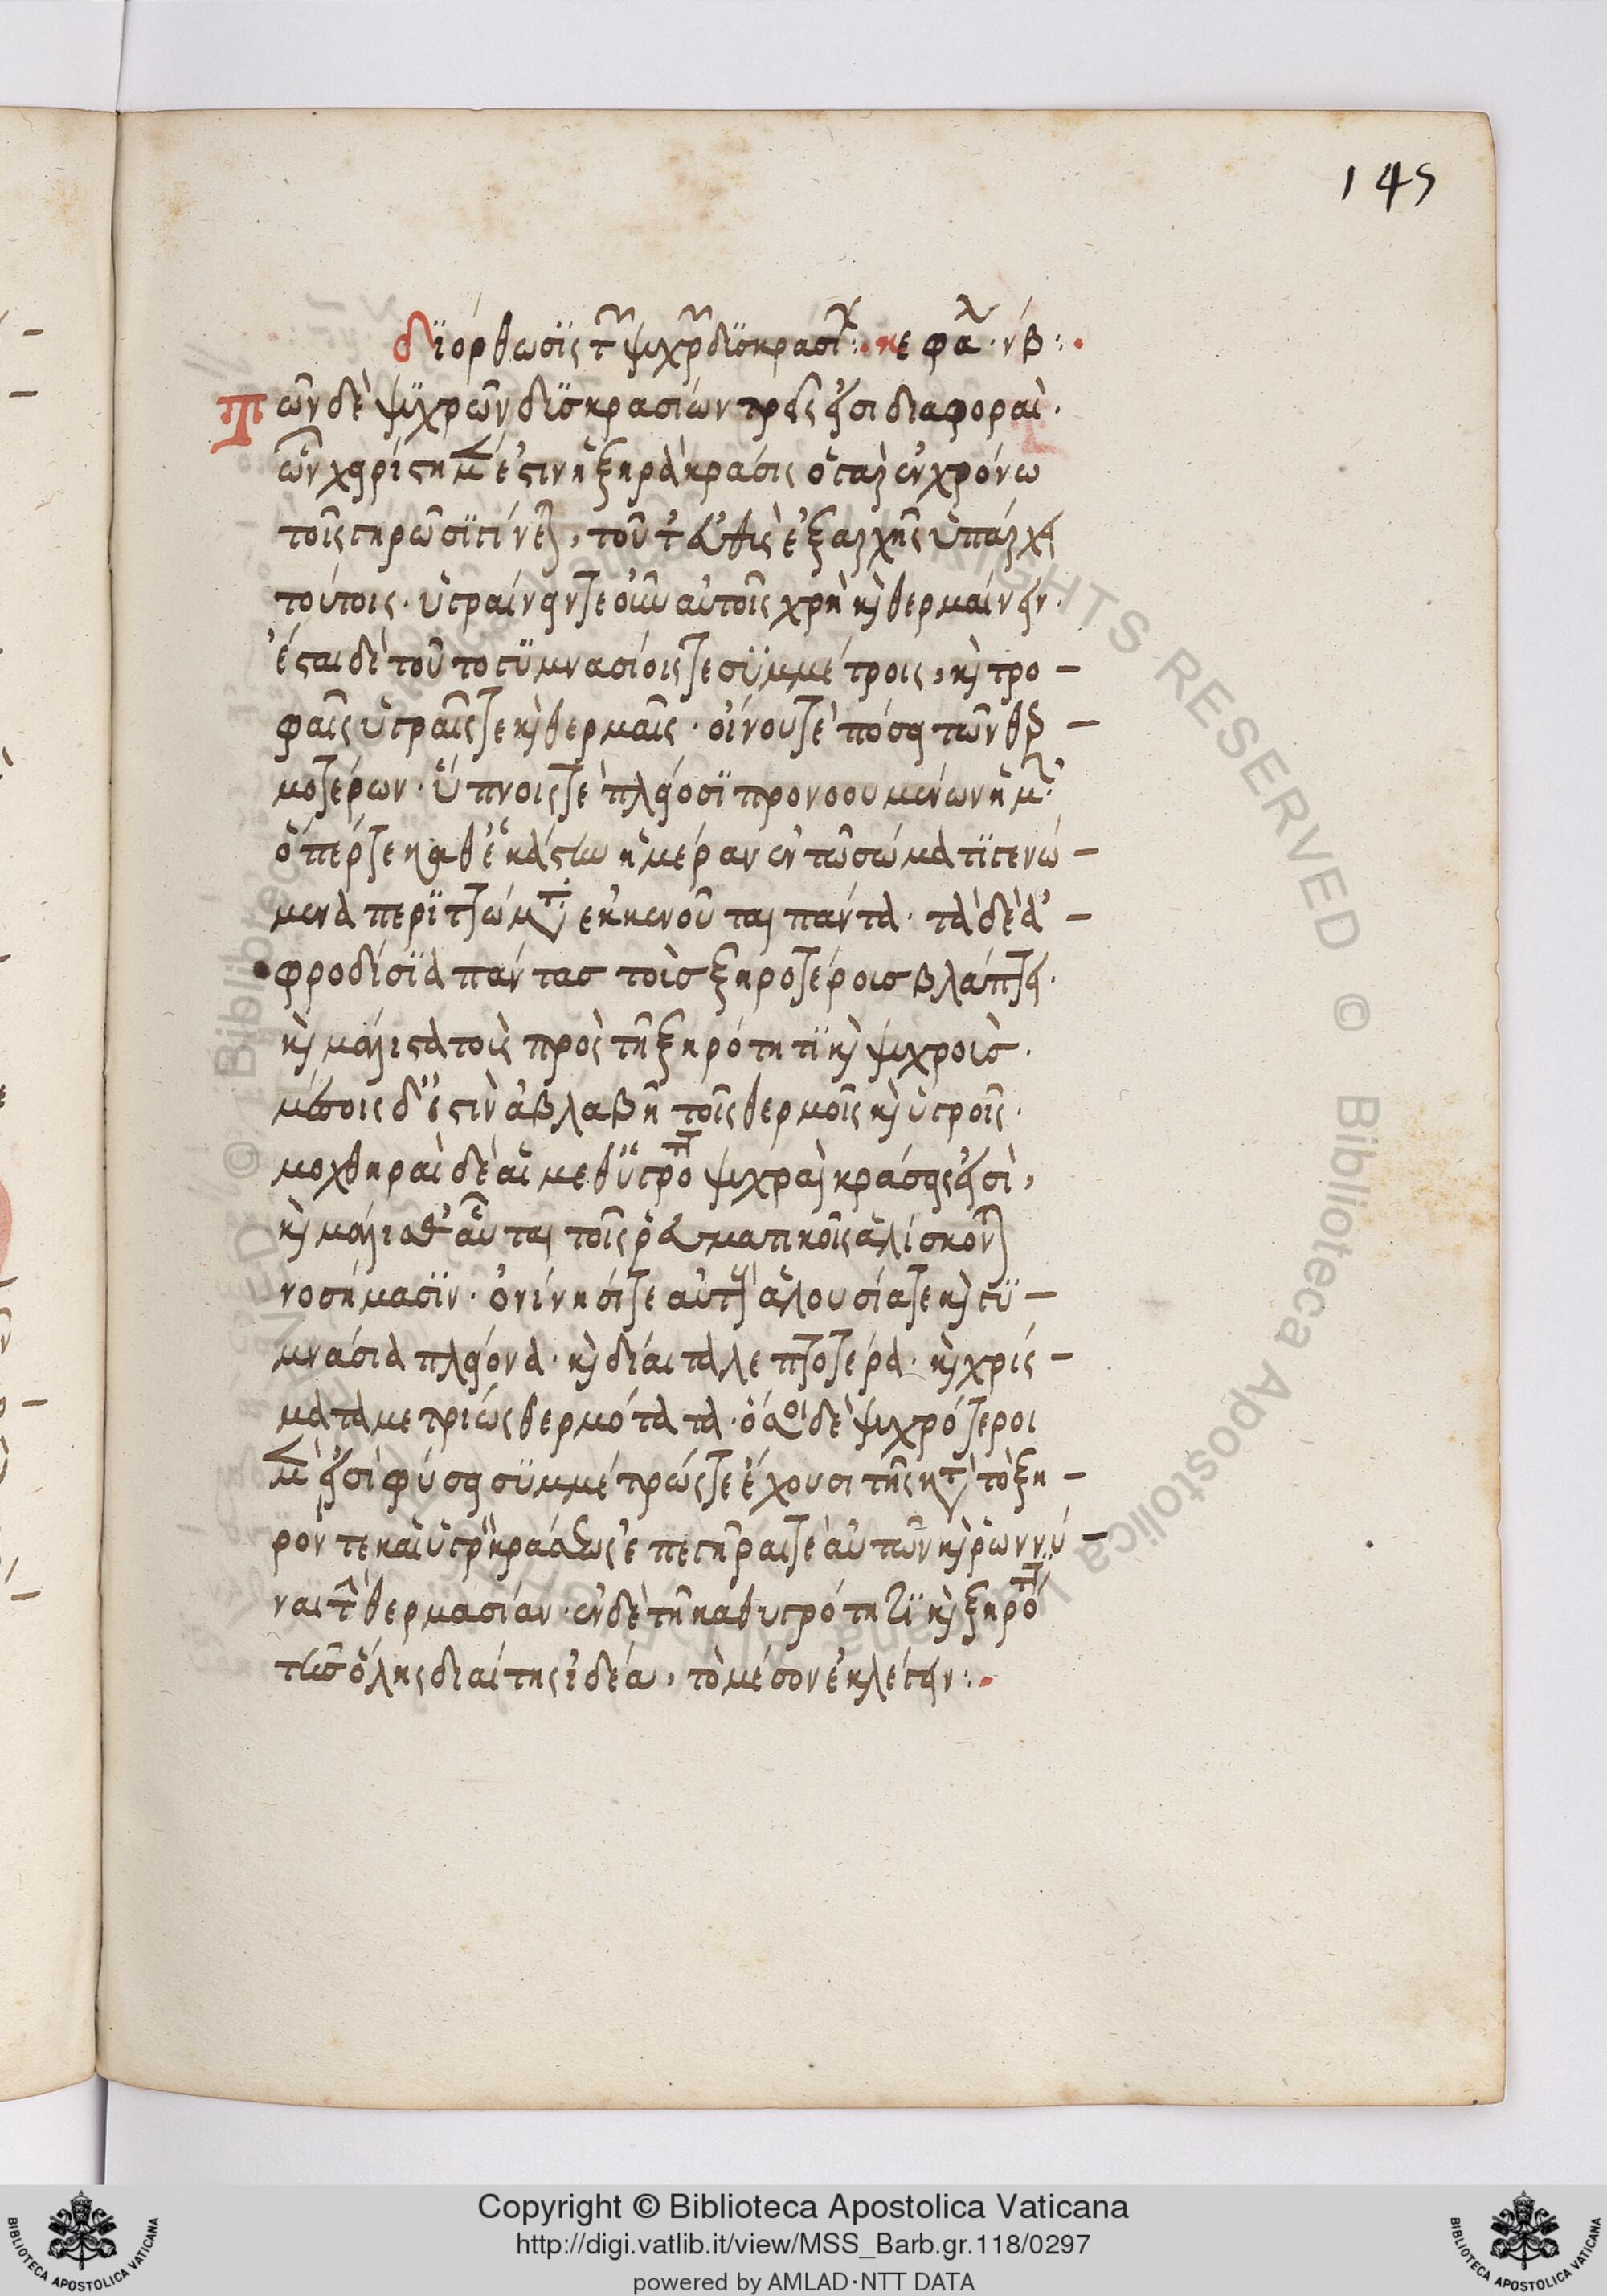 145
δϊόρθωσϊς τῶν ψυχρῶν δϊσκρασιῶν :· κεφάλ · νβ :·
Τῶν δὲ ψϋχρῶν δϊσκρασιών τρεῖς εἰσι διαφοραὶ ·
ὧν χειρίστη μὲν έστιν ἡ ξηρὰ κράσις ὅταν ἐν χρόνω
τοῖς γηρῶσϊ γίνεται, τοῦτ εὐθὺς ἐξ αρχῆς ὑπάρχει
τούτοις · ὑγραίνειν τε οὖν αὐτοῖς χρὴ κὴ θερμαίνειν ·
έσται δὲ τοῦτο γϋμνασίοις τε σϋμμέτροις, κὴ τρο –
φαῖς ὑγραῖς τε κὴ θερμαῖς · οἴνου τε πόσει τῶν θερ –
μοτέρων · ὕπνοις τὲ πλείοσϊ προνοουμένων ἡμῶν
ὅπέρ τε καθ' ἑκάστην ἡμέραν ἐν τῶ σώματϊ γενώ –
μενα περϊττώματα εκκενοῦται πάντα · τὰ δὲ ἀ –
φροδίσϊα πάντας τοὶς ξηροτέροις βλάπτει ·
κὴ μάλιστα τοὶς πρὸς τῆ ξηρότητϊ κὴ ψυχροὶς ·
μόνοις δ' ἐστιν ἀβλαβῆ τοῖς θερμοῖς κὴ ὑγροῖς ·
μοχθηραὶ δὲ αἱ μεθ' ὑγρότητος ψυχραὶ κράσεις εἰσὶ,
κὴ μάλισθ' αὗται τοῖς ῥευματικοῖς ἁλίσκονται
νοσήμασϊν · ὀνίνησί τε αὐτὰς ἀλουσία τε κὴ γϋ –
μνάσια πλείονα · κὴ δίαιτα λεπτοτέρα · κὴ χρίς –
ματα μετριώς θερμότατα · όσοι δὲ ψυχρότεροι
μὲν εἰσὶ φύσει σϋμμέτρώς τε έχουσι τῆς κατὰ τὸ ξη –
ρόν τε καὶ ὑγρὸν κράσεως ἐπεγῆραι τε αὐτῶν κὴ ῥωννύ –
ναι τὴν θερμασίαν · ἐν δὲ τῆ καθ υγρότητϊ κὴ ξηρότητα
τῆς ὅλης διαίτης ἰδέα, τὸ μέσον ἐκλέγειν :·
Copyright © Biblioteca Apostolica Vaticana
http://digi.vatlib.it/view/MSS_Barb.gr.118/0297
powered by AMLAD·NTT DATA